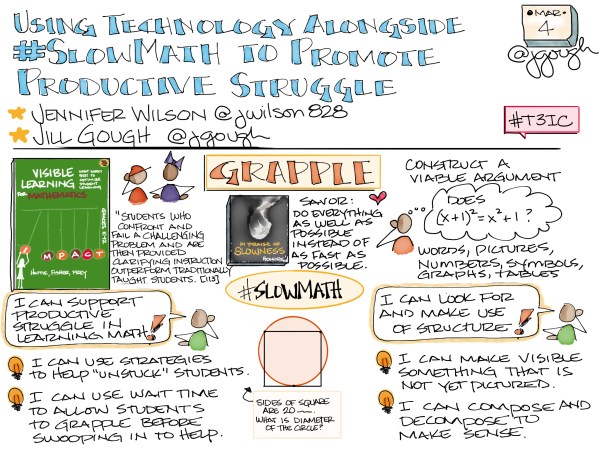 USING TECHNOLOGY ALONGSIDE
#SLOWMATH TO PROMOTE
PRODUCTIVE STRUGGLE
JENNIFER WILSON @jwilson828
JILL GOUGH @jgough
MAR
4
@jgough
#T3IC
VISIBLE
LEARNING
FOR MATHEMATICS
WHAT WORKS
BEST TO
OPTIMIZE
STUDENT
LEARNING
GRADES K-12
IMPACT
HATTIE, FISHER, FREY
"STUDENTS WHO
CONFRONT AND
FAIL A CHALLENGING
PROBLEM AND ARE
THEN PROVIDED
CLARIFYING INSTRUCTION
OUTPERFORM TRADITIONALLY
TAUGHT STUDENTS. [113]
GRAPPLE
IN PRAISE OF
SLOWNESS
HONORÉ
SAVOR:
DO EVERYTHING
AS WELL AS
POSSIBLE
INSTEAD OF
AS FAST AS
POSSIBLE.
#SLOWMATH
CONSTRUCT A
VIABLE ARGUMENT
DOES
(x+1)²=x²+1?
WORDS, PICTURES,
NUMBERS, SYMBOLS,
GRAPHS, TABLES
I CAN SUPPORT
PRODUCTIVE
STRUGGLE IN
LEARNING MATH!
I CAN USE STRATEGIES
TO HELP "UNSTUCK" STUDENTS.
I CAN USE WAIT TIME
TO ALLOW STUDENTS
TO GRAPPLE BEFORE
SWOOPING IN TO HELP.
SIDES OF SQUARE
ARE 20
WHAT IS DIAMETER
OF THE CIRCLE?
I CAN LOOK FOR
AND MAKE USE
OF STRUCTURE!
I CAN MAKE VISIBLE
SOMETHING THAT IS
NOT YET PICTURED.
I CAN COMPOSE AND
DECOMPOSE TO
MAKE SENSE.